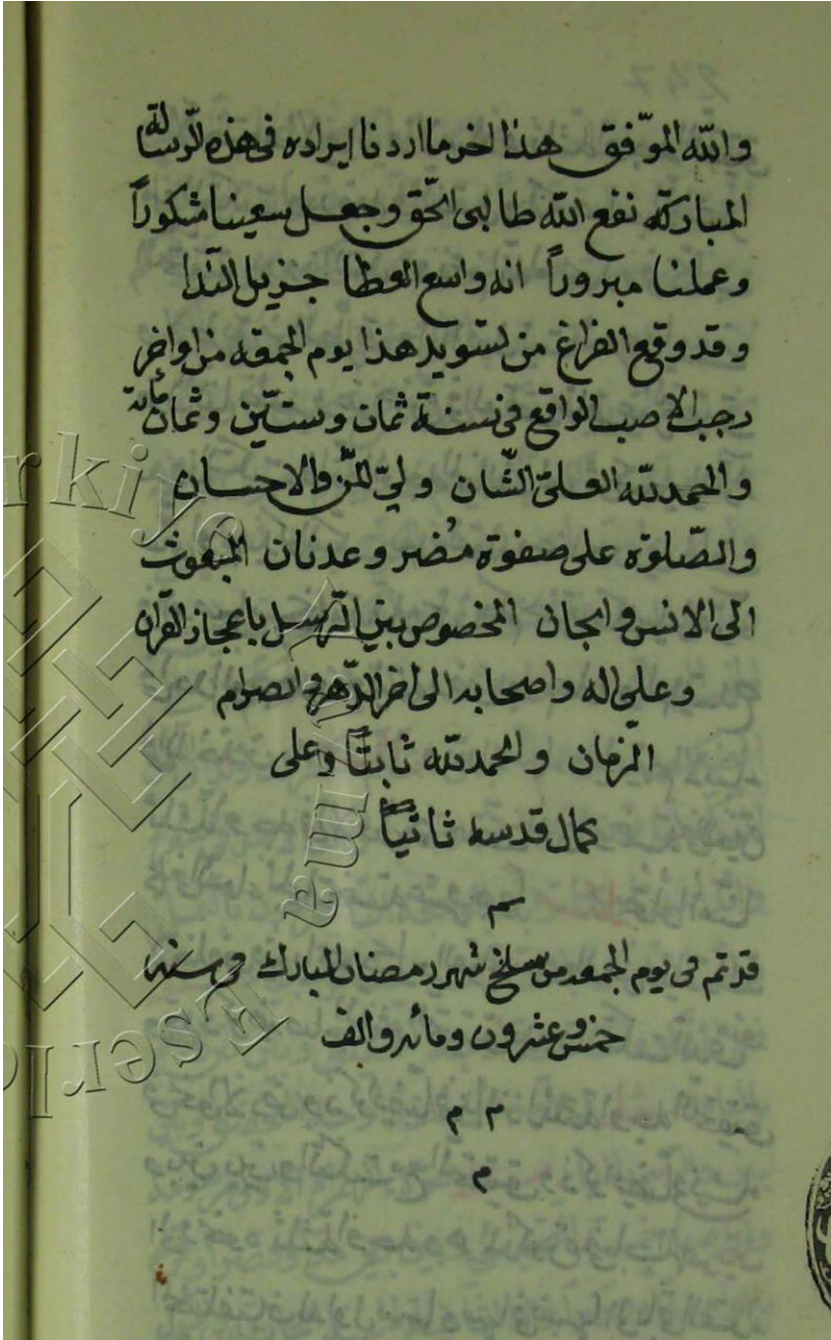 والله الموّفق هذا اخر ما اردنا ايراده فى هذه الرّسالة
المباركة نفع الله طالبى الحّق وجعل سعينا مشكوراً
وعملنا مبروراً انه واسع العطا جزيل النّدا
وقد وقع الفراغ من تسويد هذا يوم الجمعه من اواخر
رجب الاصب الواقع فى سنة ثمان وستّين وثمان مأية
والحمد لله العلىّ الشّان ولىّ المّن والاحسان
والصّلوة على صفوة مُضر وعدنان المبعوث
الى الانس والجان المخصوص بين الرّسل باعجاز القرآن
وعلى اله واصحابه الى اخر الدّهر وانصرام
الزّمان والحمد لله ثابتاً وعلى
كمال قدسه ثانياً
قد تم فى يوم الجمعه من سلخ شهر رمضان المبارك فى سنه
خمس وعشرون ومائه والف
م م
م
Türkiye
Yazma
Eserler